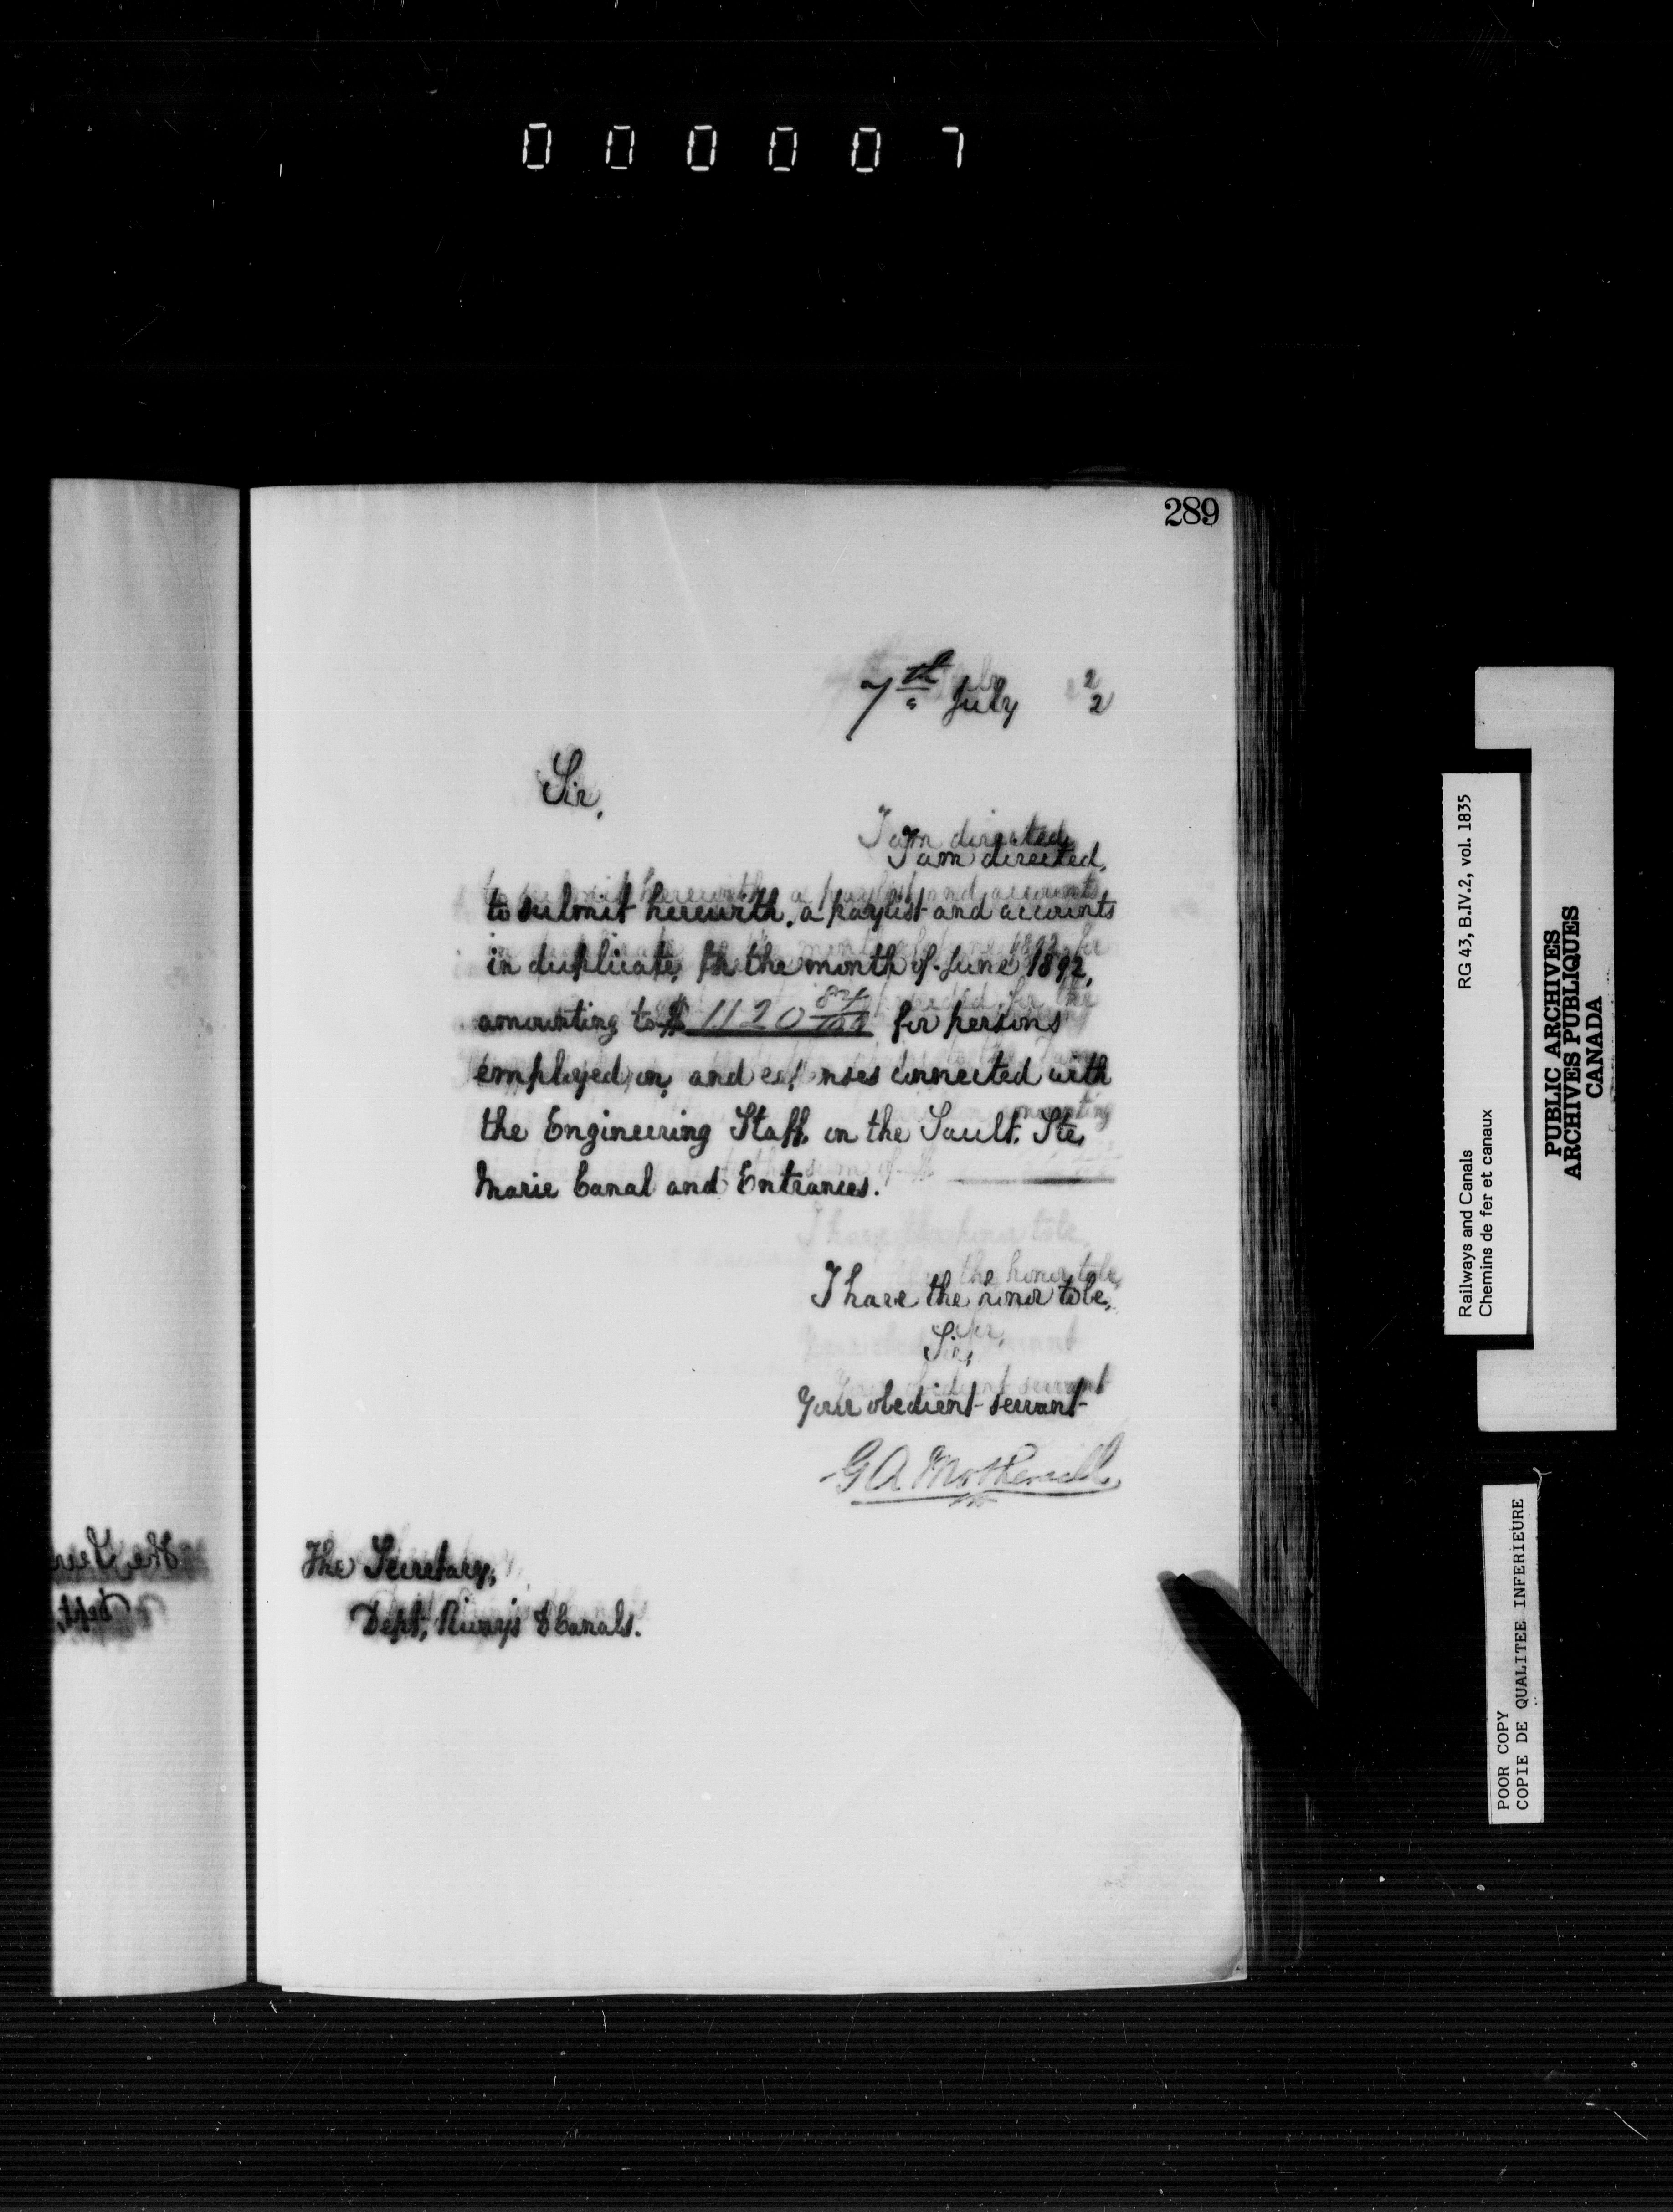 000007
289
7th July 2
Sir,
I am directed
to submit herewith, a paylist and accounts
in duplicate, for the month of June 1892,
amounting to $ 1120 84/100 for persons
employed on, and expenses connected with
the Engineering Staff, on the Sault. Ste,
Marie Canal and Entrances.
I have the honor to be,
Sir,
Your obedient servant
G A Mothersill
The Secretary,
Dept, Riways & Canals.
Railways and Canals RG 43, B.IV.2, vol. 1835
Chemins de fer et canaux
PUBLIC ARCHIVES
ARCHIVES PUBLIQUES
CANADA
POOR COPY
COPIE DE QUALITEE INFERIEURE